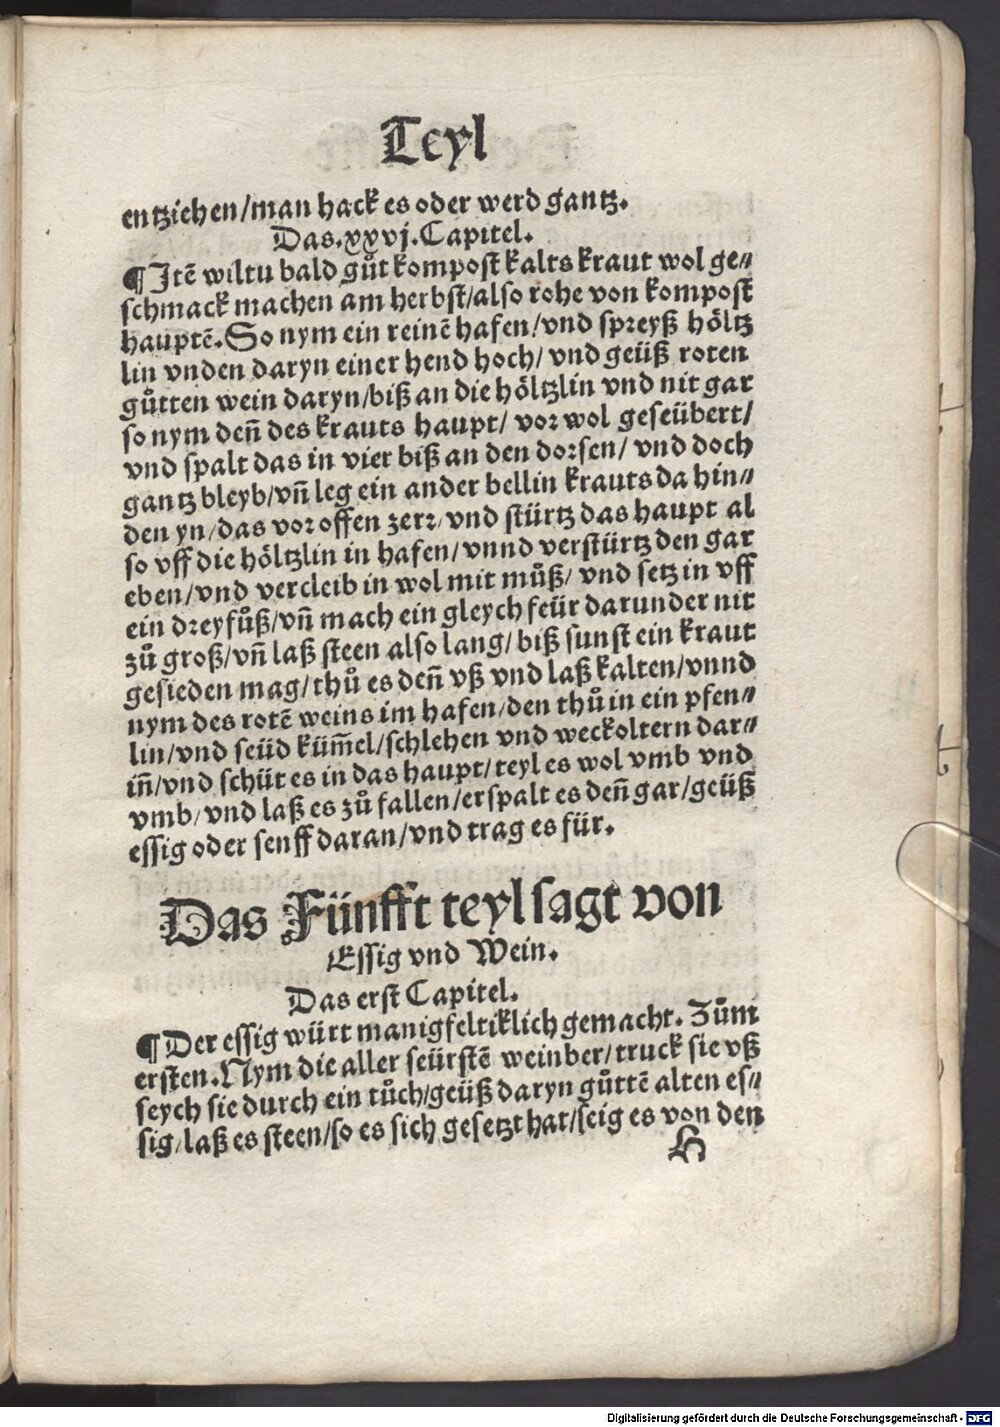 Teyl
entziehen/man hack es oder werd gantz.
Das.xxvj.Capitel.
¶Jtē wiltu bald gůt kompost kalts kraut wol ge⸗
schmack machen am herbst/also rohe von kompost
hauptē.So nym ein reinē hafen/vnd spreyß höltz
lin vnden daryn einer hend hoch/ vnd geüß roten
gůtten wein daryn/biß an die höltzlin vnd nit gar
so nym deñ des krauts haupt/ vor wol geseübert/
vnd spalt das in vier biß an den dorsen/ vnd doch
gantz bleyb/vñ leg ein ander bellin krauts da hin⸗
den yn/das vor offen zerr/vnd stürtz das haupt al
so vff die höltzlin in hafen/vnnd verstürtz den gar
eben/vnd vercleib in wol mit můß/ vnd setz in vff
ein dreyfůß/vñ mach ein gleych feür darunder nit
zů groß/vñ laß steen also lang/ biß sunst ein kraut
gesieden mag/thů es deñ vß vnd laß kalten/vnnd
nym des rotē weins im hafen/den thů in ein pfen⸗
lin/vnd seüd küm̄el/schlehen vnd weckoltern dar⸗
iñ/vnd schüt es in das haupt/teyl es wol vmb vnd
vmb/vnd laß es zů fallen/erspalt es deñ gar/geüß
essig oder senff daran/vnd trag es für.
Das Fünfft teyl sagt von
Essig vnd Wein.
Das erst Capitel.
¶Der essig würt manigfeltiklich gemacht. Zům
ersten.Nym die aller seürstē weinber/truck sie vß
seych sie durch ein tůch/geüß daryn gůttē alten es⸗
sig/laß es steen/so es sich gesetzt hat/seig es von den
H
Digitalisierung gefördert durch die Deutsche Forschungsgemeinschaft - DFG